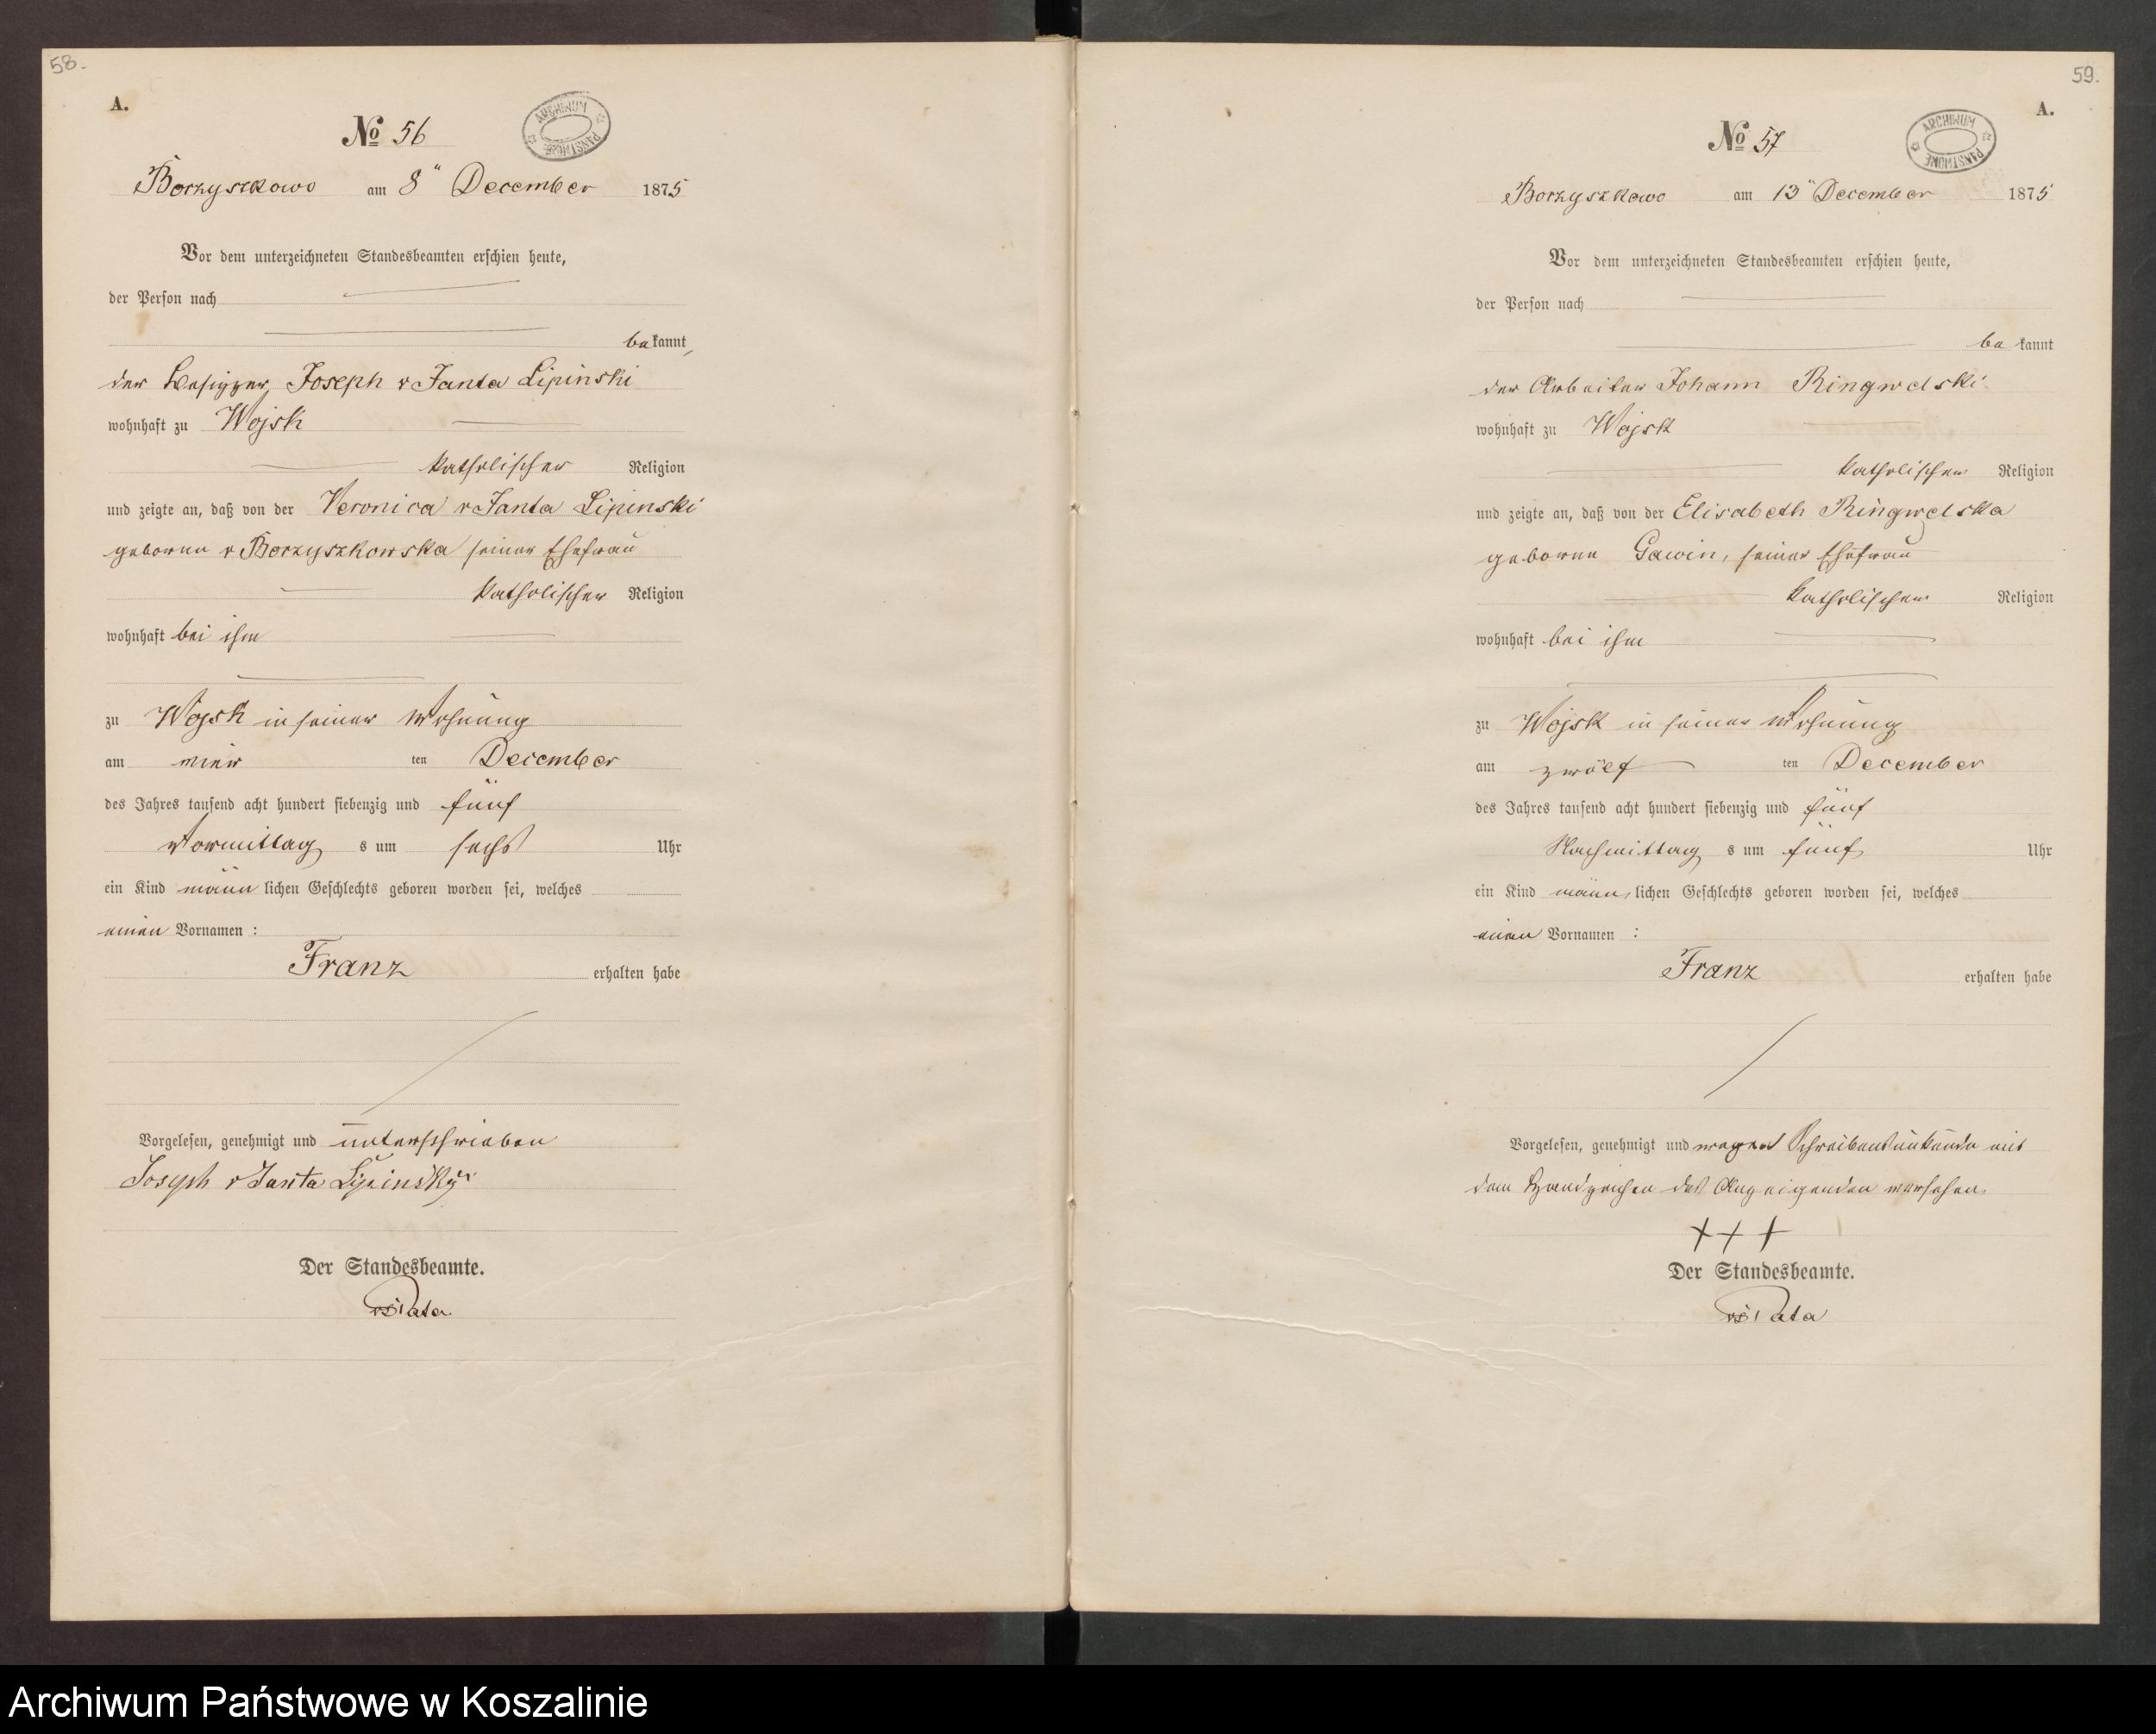 58.
A.
ARCHIWUM PAŃSTWOWE
No 56
Borzyszkowo am 8" December 1875
Vor dem unterzeichneten Standesbeamten erschien heute,
der Person nach
bekannt,
der Besitzer Joseph v Janta Lipinski
wohnhaft zu Wojsk
katholischer Religion
und zeigte an, daß von der Veronica v Janta Lipinski
geborene v Borzyszkowska seiner Ehefrau
katholischer Religion
wohnhaft bei ihm
zu Wojsk in seiner Wohnung
am vier ten December
des Jahres tausend acht hundert siebenzig und fünf
Vormittag s um sechs Uhr
ein Kind männ lichen Geschlechts geboren worden sei, welches
einen Vornamen :
Franz erhalten habe
Vorgelesen, genehmigt und unterschrieben
Joseph v Janta Lipinsky
Der Standesbeamte.
59.
A.
ARCHIWUM PAŃSTWOWE
No 57
Borzyszkowo am 13" December 1875
Vor dem unterzeichneten Standesbeamten erschien heute,
der Person nach
bekannt
der Arbeiter Johann Ringwelski
wohnhaft zu Wojsk
katholischer Religion
und zeigte an, daß von der Elisabeth Ringwelska
geborene Gawin, seiner Ehefrau
katholischer Religion
wohnhaft bei ihm
zu Wojsk in seiner Wohnung
am zwölf ten December
des Jahres tausend acht hundert siebenzig und fünf
Nachmittag s um fünf Uhr
ein Kind männ lichen Geschlechts geboren worden sei, welches
einen Vornamen :
Franz erhalten habe
Vorgelesen, genehmigt und wegen Schreibensunkunde mit
dem Handzeichen des Anzeigenden versehen.
+++
Der Standesbeamte.
Archiwum Państwowe w Koszalinie